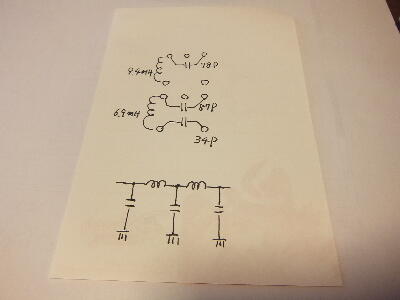 9.4mH 18P
6.9mH 57P
34P